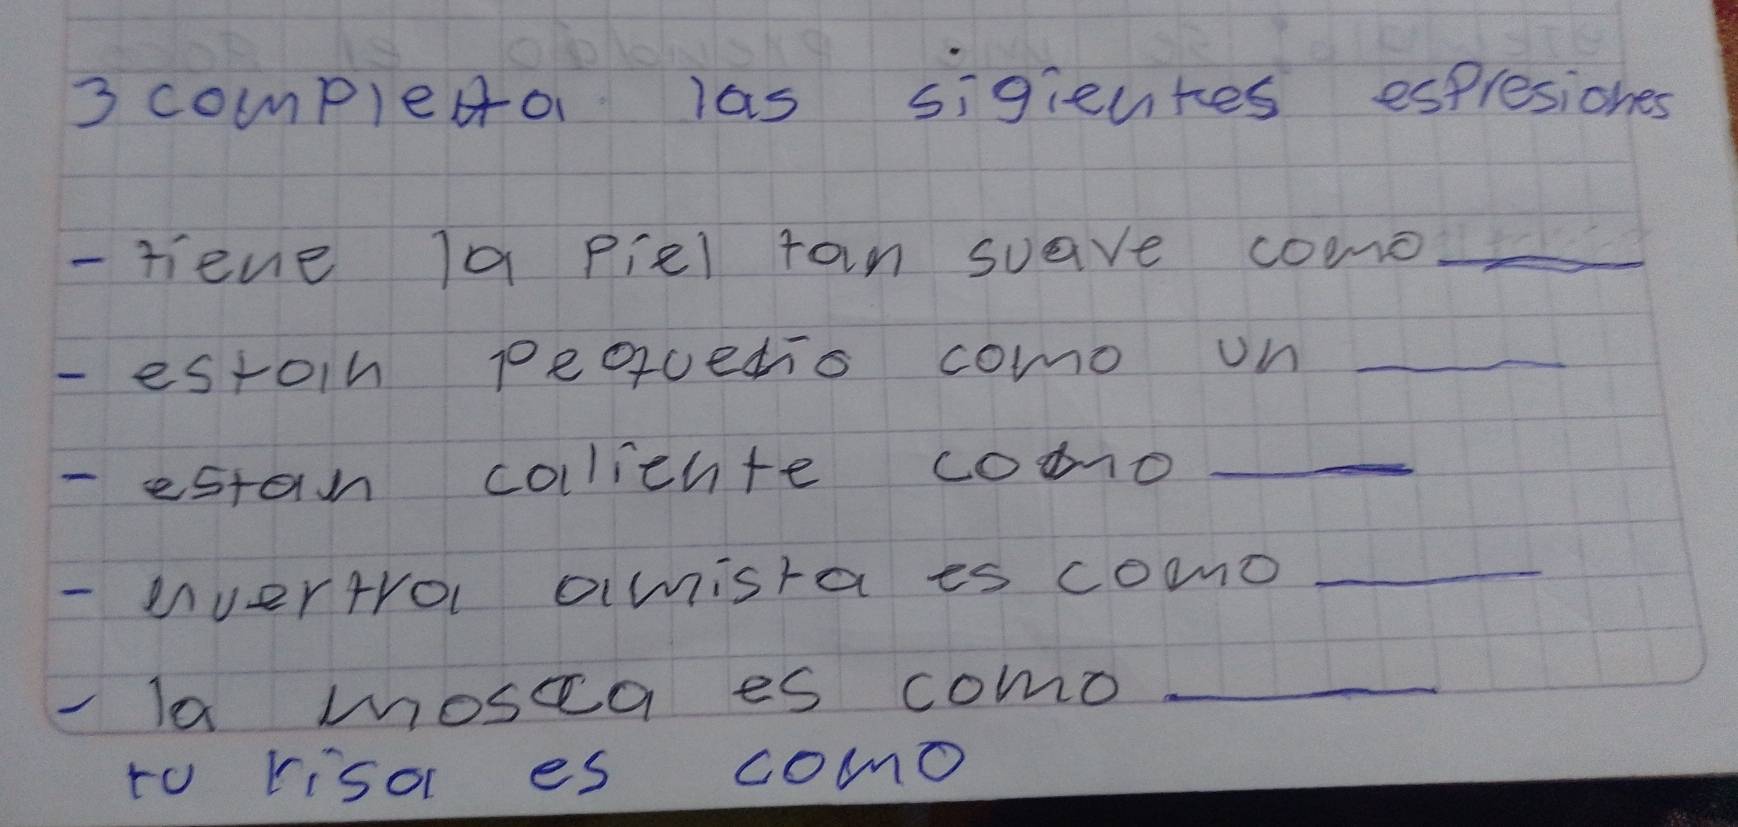 3 completa las sigientes espresiones
- tiene la piel tan suave como ____
- estan pequeño como un ____
- estan caliente como ____
- nuertra amista es como ____
- la mosca es como ____
tu risa es como